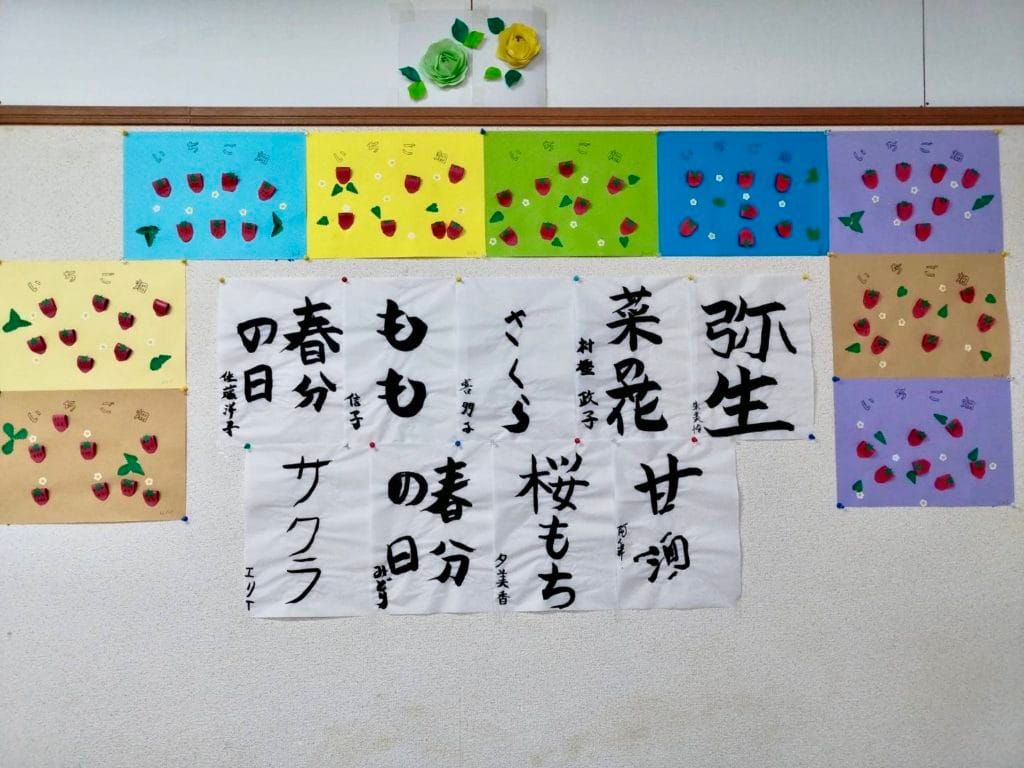 いちご畑
いちご畑
いちご畑
いちご畑
いちご畑
いちご畑
いちご畑
いちご畑
いちご畑
弥生
菜の花
政子
さくら
もも
信子
春分
の日
甘酒
桜もち
夕美香
春分
の日
みどり
サクラ
エリ下